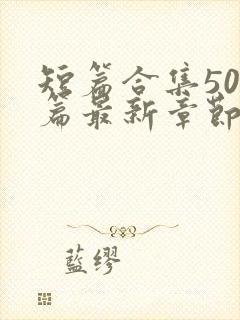 短篇合集50
篇最新章節
藍缪